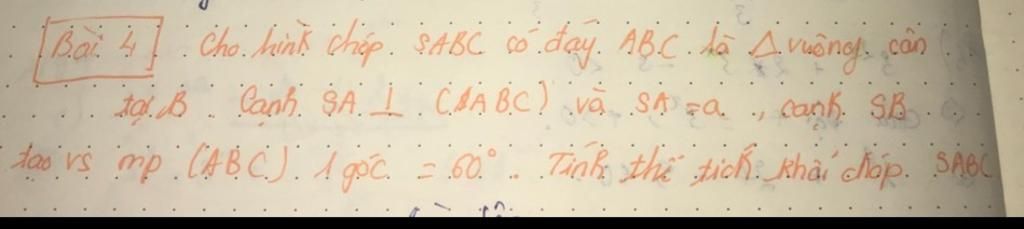 Bài 4 Cho hình chóp. SABC có đáy ABC là Δ vuông cân
tại B. Cạnh SA ⊥ (ABC) và SA = a, cạnh SB
tạo vs mp (ABC) 1 góc = 60°. Tính thể tích khối chóp. SABC